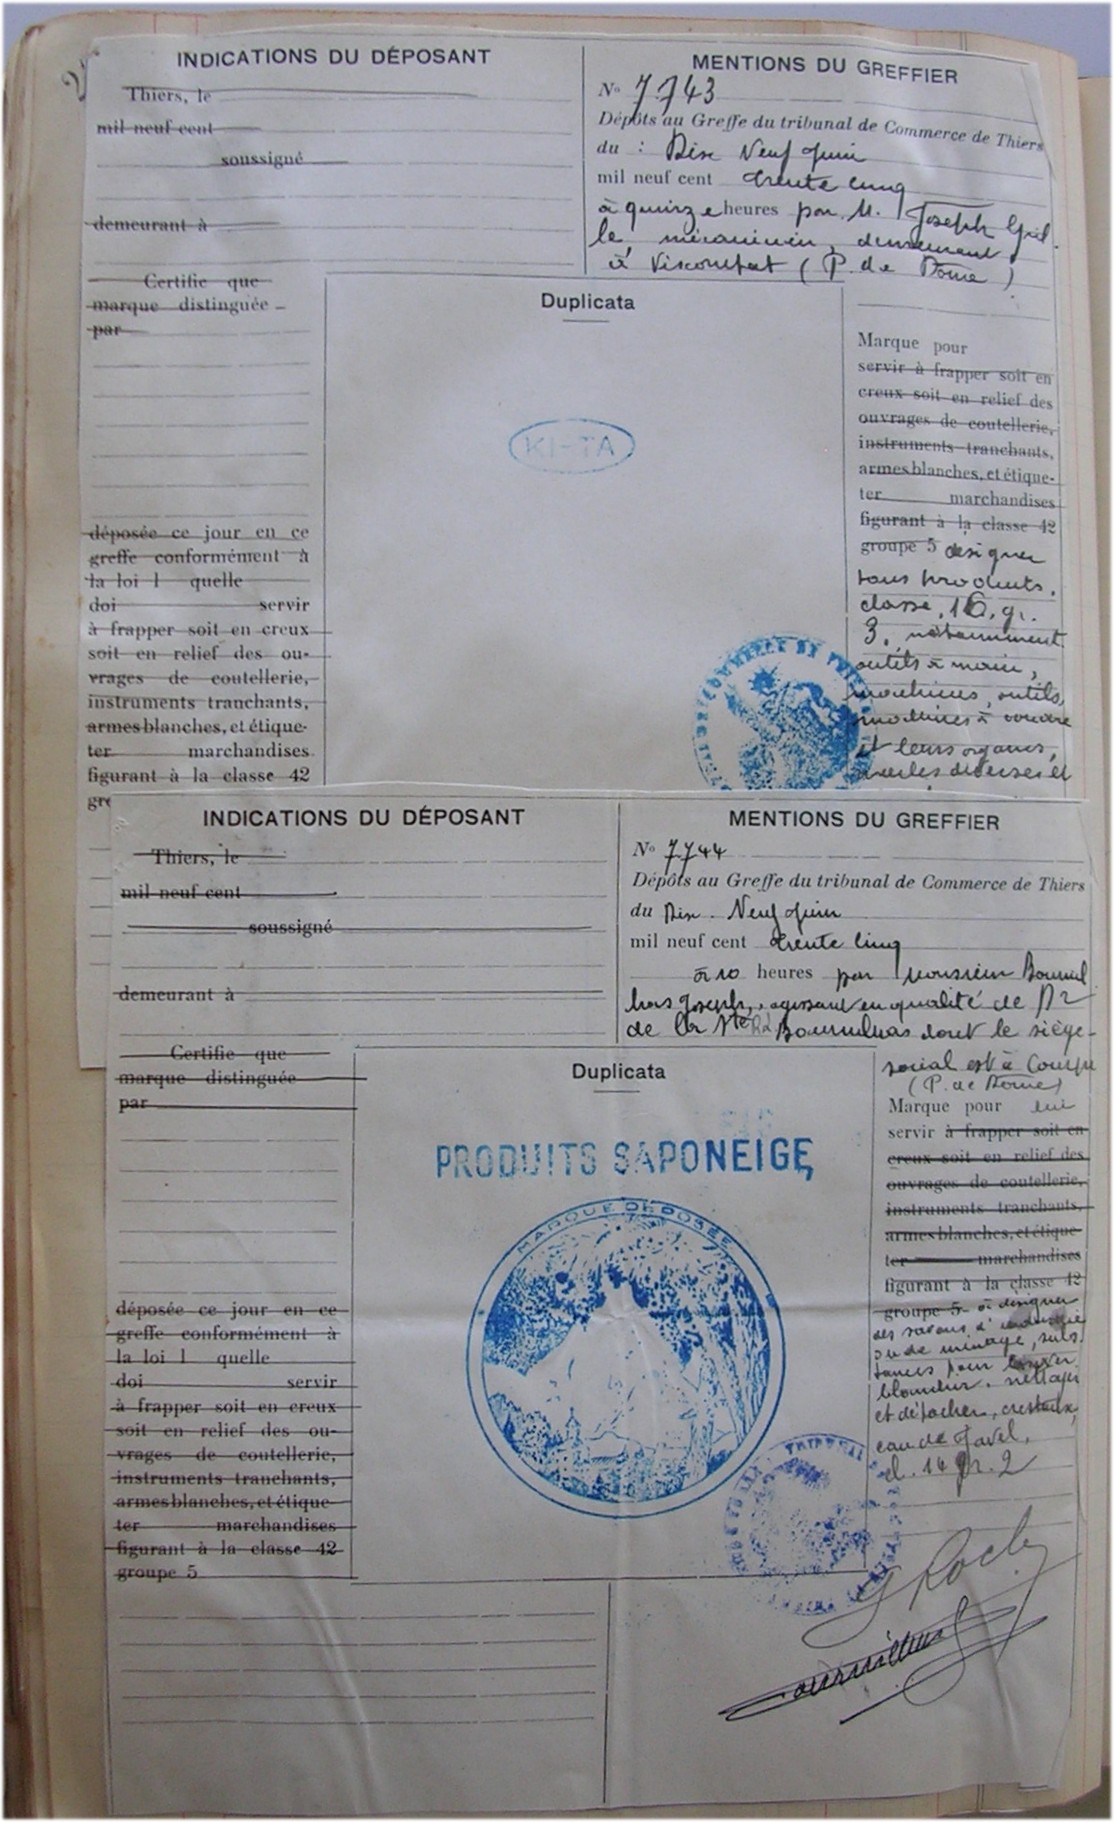 INDICATIONS DU DÉPOSANT
Thiers, le
mil neuf cent
soussigné
demeurant à
Certifie que
marque distinguée
par
déposée ce jour en ce
greffe conformément à
la loi l quelle
doi servir
à frapper soit en creux
soit en relief des ou-
vrages de coutellerie,
instruments tranchants,
armes blanches, et étique-
ter marchandises
figurant à la classe 42
MENTIONS DU GREFFIER
No 7.743
Dépôts au Greffe du tribunal de Commerce de Thiers
du : Dix Neuf Juin
mil neuf cent trente cinq
à quinze heures par M. Joseph
mécanicien, demeurant
à Viscomtat (P. de Dome)
Duplicata
KI-TA
Marque pour
servir à frapper soit en
creux soit en relief des
ouvrages de coutellerie,
instruments tranchants,
armes blanches, et étique-
ter marchandises
figurant à la classe 42
groupe 5 désigner
tous produits,
classe, 16, gr.
3, notamment
outils à main,
machines, outils,
machines à coudre
et leurs organes,
diverses et
INDICATIONS DU DÉPOSANT
Thiers, le
mil neuf cent
soussigné
demeurant à
Certifie que
marque distinguée
par
déposée ce jour en ce
greffe conformément à
la loi l quelle
doi servir
à frapper soit en creux
soit en relief des ou-
vrages de coutellerie,
instruments tranchants,
armes blanches, et étique-
ter marchandises
figurant à la classe 42
groupe 5
MENTIONS DU GREFFIER
No 7.744
Dépôts au Greffe du tribunal de Commerce de Thiers
du Dix. Neuf Juin
mil neuf cent trente cinq
à 10 heures par Monsieur
Joseph, agissant en qualité de
de la dont le siège
social est à Courpière
(P. de Dome)
Duplicata
PRODUITS SAPONEIGE
MARQUE DÉPOSÉE
Marque pour
servir à frapper soit en
creux soit en relief des
ouvrages de coutellerie,
instruments tranchants,
armes blanches, et étique-
ter marchandises
figurant à la classe 42
groupe 5 à désigner
des savons d'industrie
ou de ménage, subs-
tances pour lessiver
blanchir, nettoyer
et détacher, cristaux,
eau de Javel,
cl. 14 gr. 2